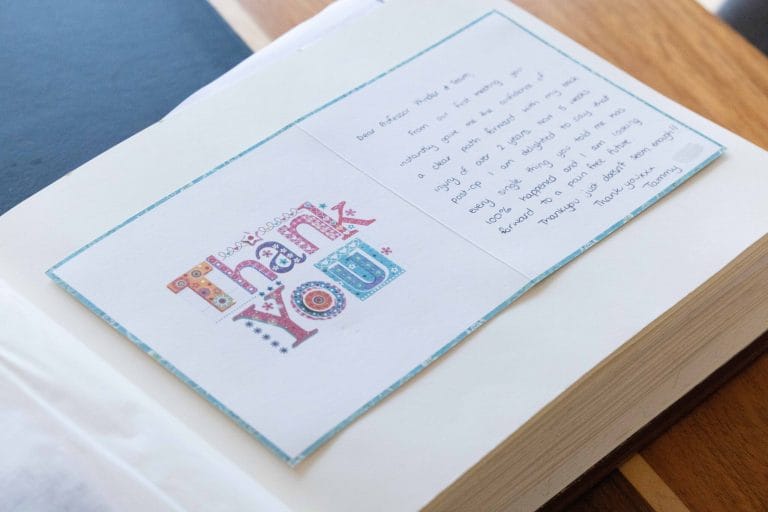 Thank
You
Dear Professor & Team,
From our first meeting you
instantly gave me the confidence of
a clear path forward with my neck
injury of over 2 years. Now 15 weeks
post-op I am delighted to say that
every single thing you told me has
100% happened and I am looking
forward to a pain free future.
Thankyou just doesn't seem enough!!
Thank you xx
Tammy